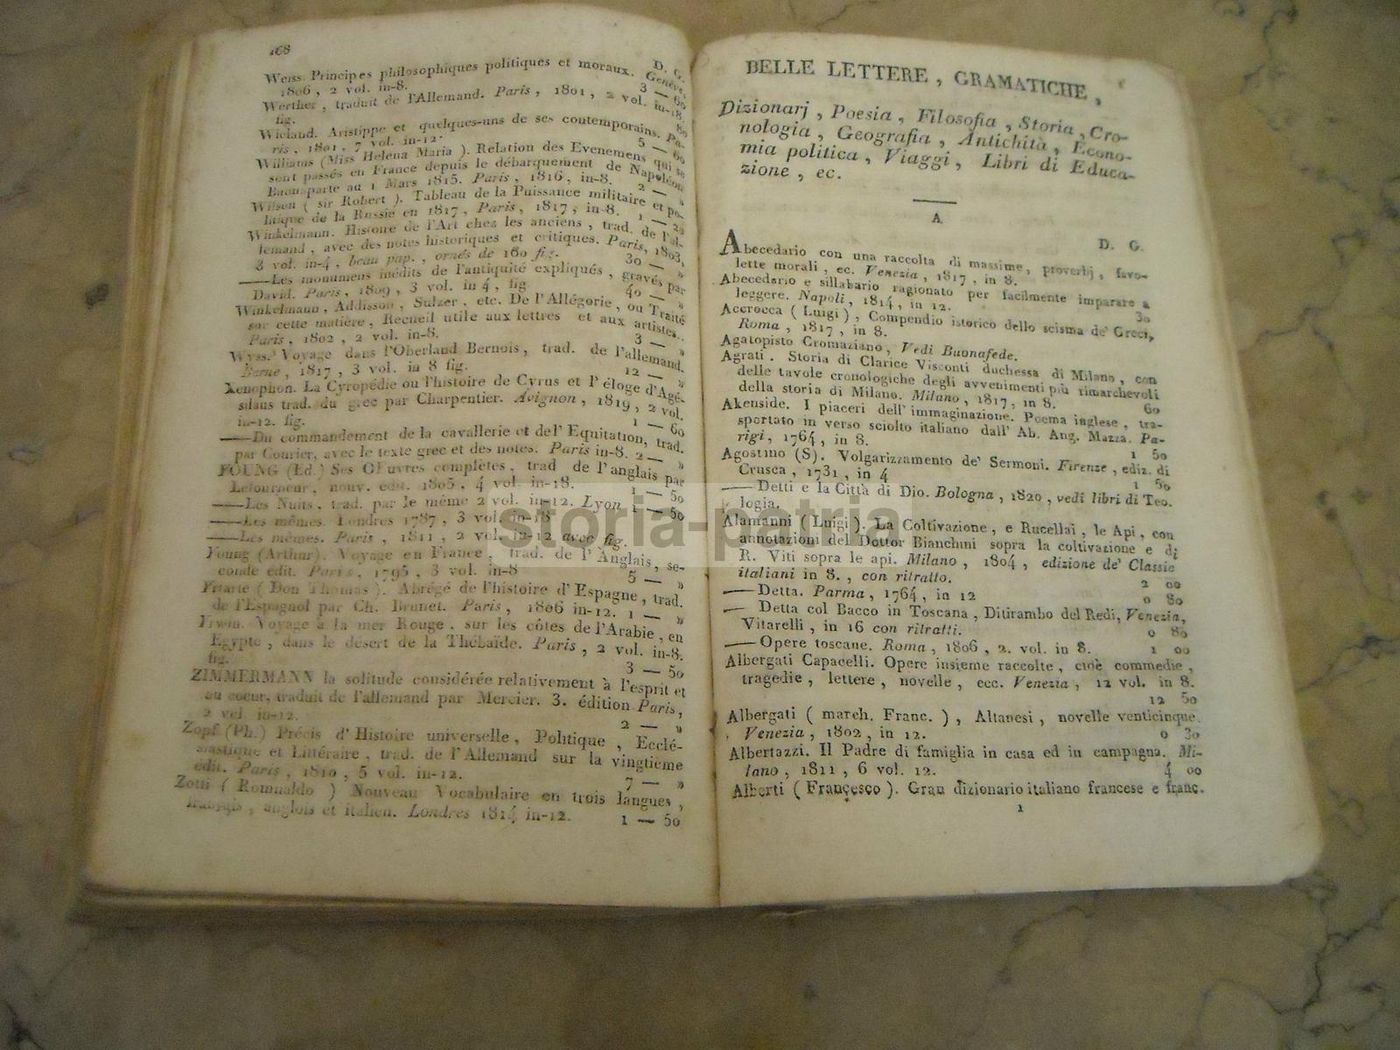 168
D. G.
Weiss. Principes philosophiques politiques et moraux. Genève,
1806, 2 vol. in-8. 3 — 60
Werther, traduit de l'Allemand. Paris, 1801, 2 vol. in-18.
fig. 80
Wieland. Aristippe et quelques-uns de ses contemporains. Pa-
ris, 1801, 7 vol. in-12. 5 — 60
Williams (Miss Helena Maria). Relation des Evenemens qui se
sont passés en France depuis le débarquement de Napoléon
Buonaparte au 1 Mars 1815. Paris, 1816, in-8. 2 — »
Wilson (sir Robert). Tableau de la Puissance militaire et po-
litique de la Russie en 1817, Paris, 1817, in-8. 1 — 20
Winkelmann. Histoire de l'Art chez les anciens, trad. de l'al-
lemand, avec des notes historiques et critiques. Paris, 1803,
3 vol. in-4, beau pap., ornés de 160 fig. 30 — »
—Les monumens inédits de l'antiquité expliqués, gravés par
David. Paris, 1809, 3 vol. in 4, fig 40 — »
Winkelmann, Addisson, Sulzer, etc. De l'Allégorie, ou Traité
sur cette matière, Recueil utile aux lettres et aux artistes.
Paris, 1802, 2 vol. in-8. 3 — »
Wyss. Voyage dans l'Oberland Bernois, trad. de l'allemand.
Berne, 1817, 3 vol. in 8 fig. 12 — »
Xenophon. La Cyropédie ou l'histoire de Cyrus et l'éloge d'Agé-
silaus trad. du grec par Charpentier. Avignon, 1819, 2 vol.
in-12. fig. 1 — 60
—Du commandement de la cavallerie et del' Equitation, trad.
par Courier, avec le texte grec et des notes. Paris in-8. 2 — »
YOUNG (Ed.) Ses OEuvres complètes, trad de l'anglais par
Letourneur, nouv. edit. 1805, 4 vol. in-18. 1 — 50
—Les Nuits, trad. par le même 2 vol. in-12. Lyon 1 — 50
—Les mêmes. Londres 1787, 3 vol. in-18
—Les mêmes. Paris, 1811, 2 vol. in-12 avec fig.
Young (Arthur). Voyage en France, trad. de l'Anglais, se-
conde édit. Paris, 1795, 3 vol. in-8 5 — »
Yriarte (Don Thomas). Abrégé de l'histoire d'Espagne, trad.
de l'Espagnol par Ch. Brunet. Paris, 1806 in-12. 1 — »
Irwin. Voyage à la mer Rouge, sur les côtes de l'Arabie, en
Egypte, dans le désert de la Thebaïde. Paris, 2 vol. in-8.
fig. 3 — 50
ZIMMERMANN la solitude considérée relativement à l'esprit et
au coeur, traduit de l'allemand par Mercier. 3. édition Paris,
2 vol in-12. 2 — »
Zopf (Ph.) Précis d'Histoire universelle, Politique, Ecclé-
siastique et Littéraire, trad. de l'Allemand sur la vingtieme
édit. Paris, 1810, 5 vol. in-12. 7 — »
Zotti (Romualdo) Nouveau Vocabulaire en trois langues,
français, anglois et italien. Londres 1814 in-12. 1 — 50
BELLE LETTERE, GRAMATICHE,
Dizionarj, Poesia, Filosofia, Storia, Cro-
nologia, Geografia, Antichità, Econo-
mia politica, Viaggi, Libri di Educa-
zione, ec.
A.
D. G.
Abecedario con una raccolta di massime, proverbj, favo-
lette morali, ec. Venezia, 1817, in 8.
Abecedario e sillabario ragionato per facilmente imparare a
leggere. Napoli, 1814, in 12. 30
Accrocca (Luigi), Compendio istorico dello scisma de' Greci,
Roma, 1817, in 8.
Agatopisto Cromaziano, Vedi Buonafede.
Agrati. Storia di Clarice Visconti duchessa di Milano, con
delle tavole cronologiche degli avvenimenti più rimarchevoli
della storia di Milano. Milano, 1817, in 8. 60
Akenside. I piaceri dell' immaginazione. Poema inglese, tra-
sportato in verso sciolto italiano dall' Ab. Ang. Mazza. Pa-
rigi, 1764, in 8. 1 50
Agostino (S). Volgarizzamento de' Sermoni. Firenze, ediz. di
Crusca, 1731, in 4 1 50
—Detti e la Città di Dio. Bologna, 1820, vedi libri di Teo.
logia.
Alamanni (Luigi). La Coltivazione, e Rucellai, le Api, con
annotazioni del Dottor Bianchini sopra la coltivazione e di
R. Viti sopra le api. Milano, 1804, edizione de' Classic
italiani in 8., con ritratto. 2 00
—Detta. Parma, 1764, in 12 0 80
— Detta col Bacco in Toscana, Ditirambo del Redi, Venezia,
Vitarelli, in 16 con ritratti. 0 80
—Opere toscane. Roma, 1806, 2. vol. in 8. 1 00
Albergati Capacelli. Opere insieme raccolte, cioè commedie,
tragedie, lettere, novelle, ecc. Venezia, 12 vol. in 8.
12 50
Albergati (march. Franc.), Altanesi, novelle venticinque.
Venezia, 1802, in 12. 0 30
Albertazzi. Il Padre di famiglia in casa ed in campagna. Mi-
lano, 1811, 6 vol. 12. 4 00
Alberti (Francesco). Gran dizionario italiano francese e franc.
1
storia-patria